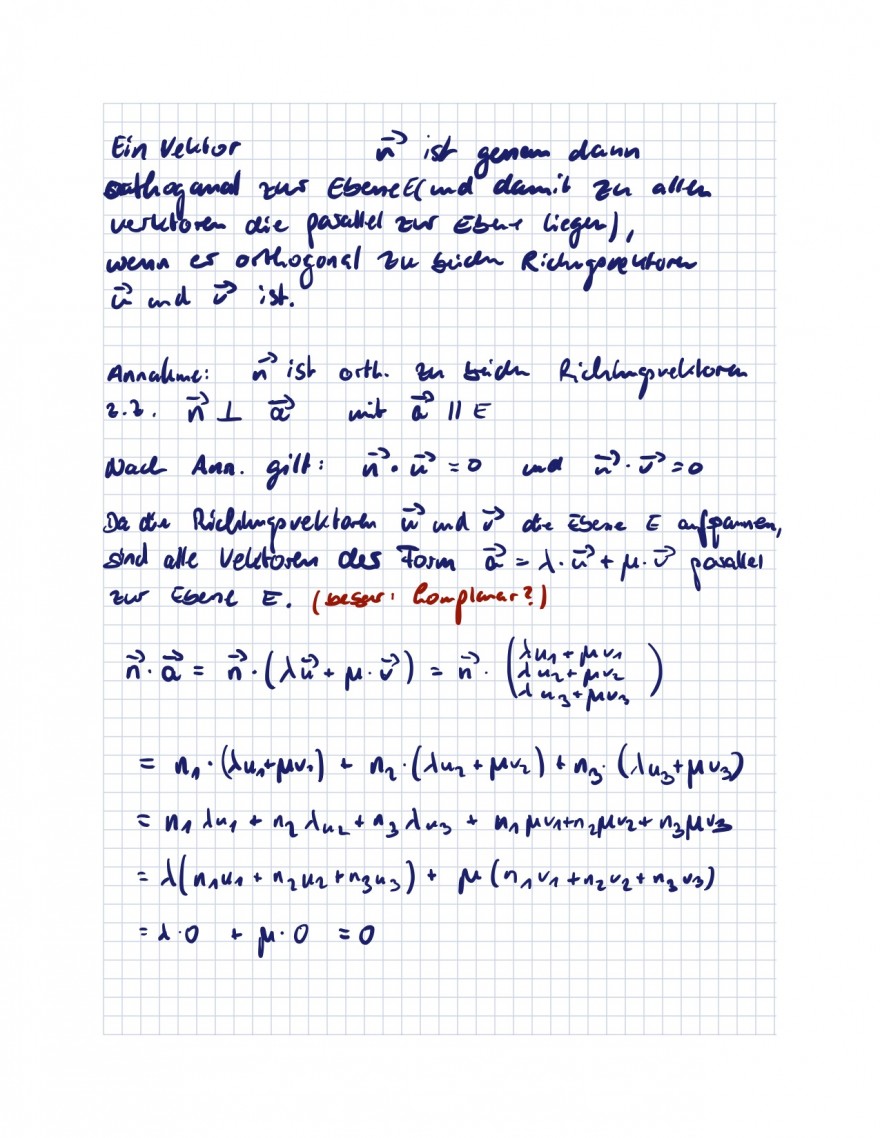 Ein Vektor n⃗ ist genau dann
orthogonal zur Ebene E (und damit zu allen
Vektoren die parallel zur Ebene liegen),
wenn er orthogonal zu beiden Richungsvektoren
u⃗ und v⃗ ist.
Annahme: n⃗ ist orth. zu beiden Richtungsvektoren
z.z. n⃗ ⊥ a⃗ mit a⃗ || E
Nach Ann. gilt: n⃗ · u⃗ = 0 und n⃗ · v⃗ = 0
Da die Richtungsvektoren u⃗ und v⃗ die Ebene E aufspannen,
sind alle Vektoren der Form a⃗ = λ · u⃗ + μ · v⃗ parallel
zur Ebene E. (besser: komplanar?)
n⃗ · a⃗ = n⃗ · (λu⃗ + μ · v⃗) = n⃗ · (λu₁ + μv₁
λu₂ + μv₂
λu₃ + μv₃)
= n₁ · (λu₁ + μv₁) + n₂ · (λu₂ + μv₂) + n₃ · (λu₃ + μv₃)
= n₁λu₁ + n₂λu₂ + n₃λu₃ + n₁μv₁ + n₂μv₂ + n₃μv₃
= λ(n₁u₁ + n₂u₂ + n₃u₃) + μ(n₁v₁ + n₂v₂ + n₃v₃)
= λ · 0 + μ · 0 = 0